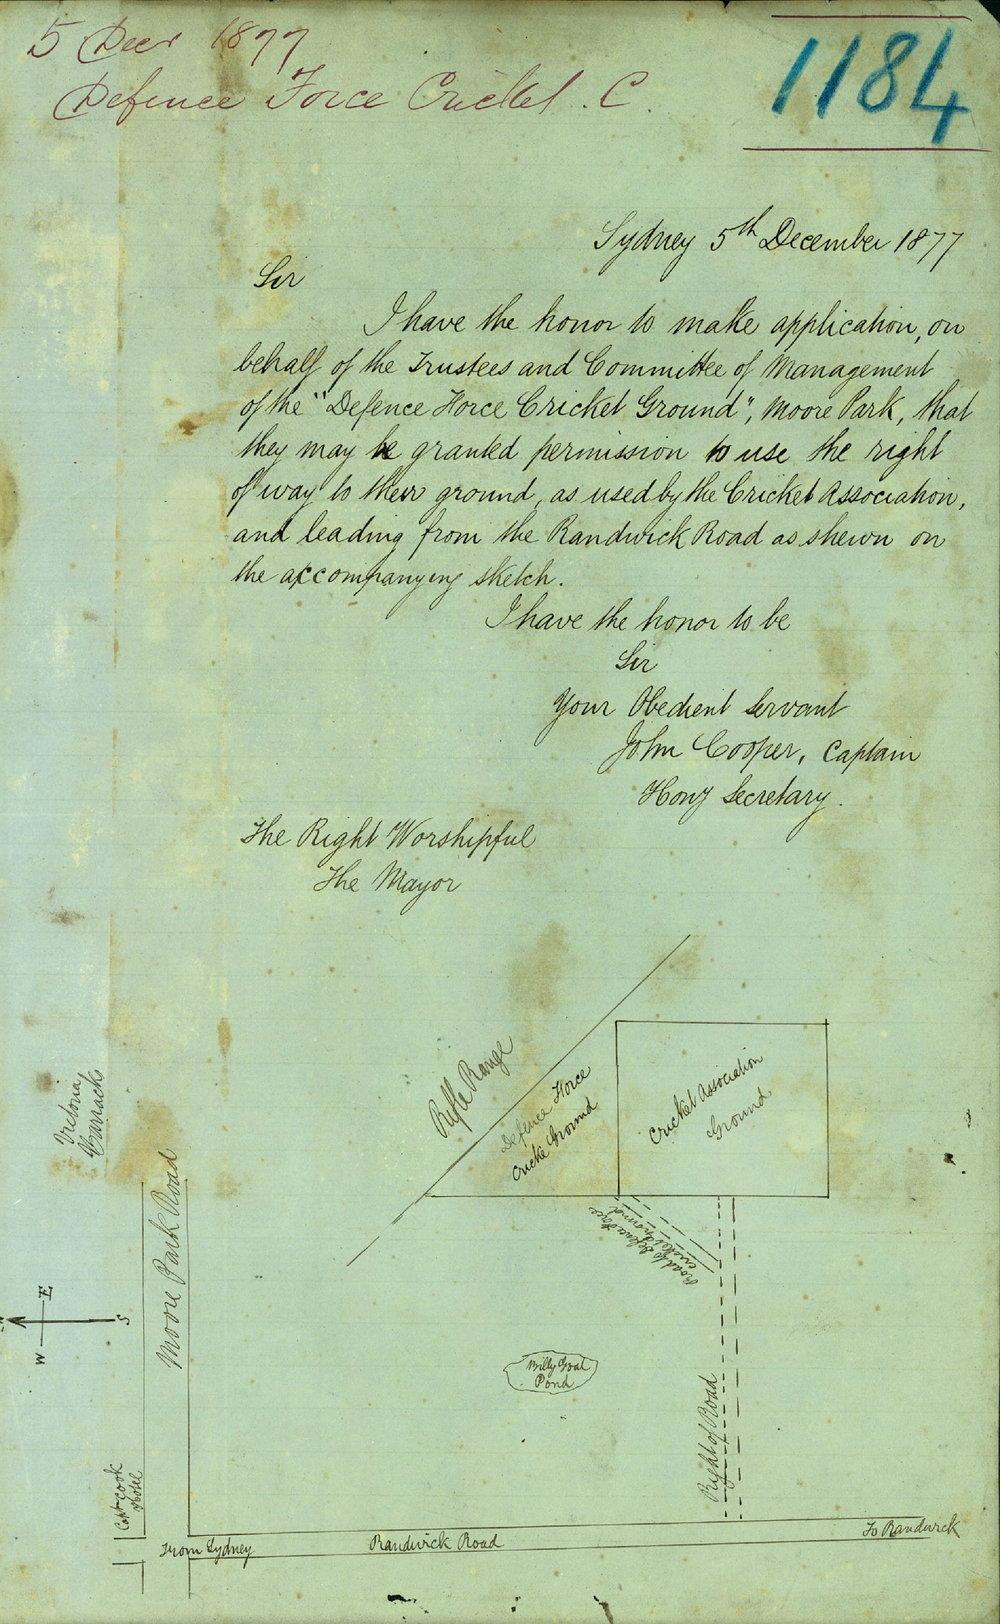 5 Decr 1877
Defence Force Cricket. C.
1184
Sydney 5th December 1877
Sir
I have the honor to make application, on
behalf of the Trustees and Committee of Management
of the "Defence Force Cricket Ground", Moore Park, that
they may be granted permission to use the right
of way to their ground, as used by the Cricket Association,
and leading from the Randwick Road as shewn on
the accompanying sketch.
I have the honor to be
Sir
Your Obedient Servant
John Cooper, Captain
Hony Secretary.
The Right Worshipful
The Mayor
Rifle Range
Defence Force
Cricke Ground
Cricket Association
Ground
Victoria
Barracks
Moore Park Road
Road to Defence Force
Cricket Ground
E
S
W
Billy Goat
Pond
Right of Road
Capt Cook
Hotel
From Sydney
Randwick Road
To Randwick